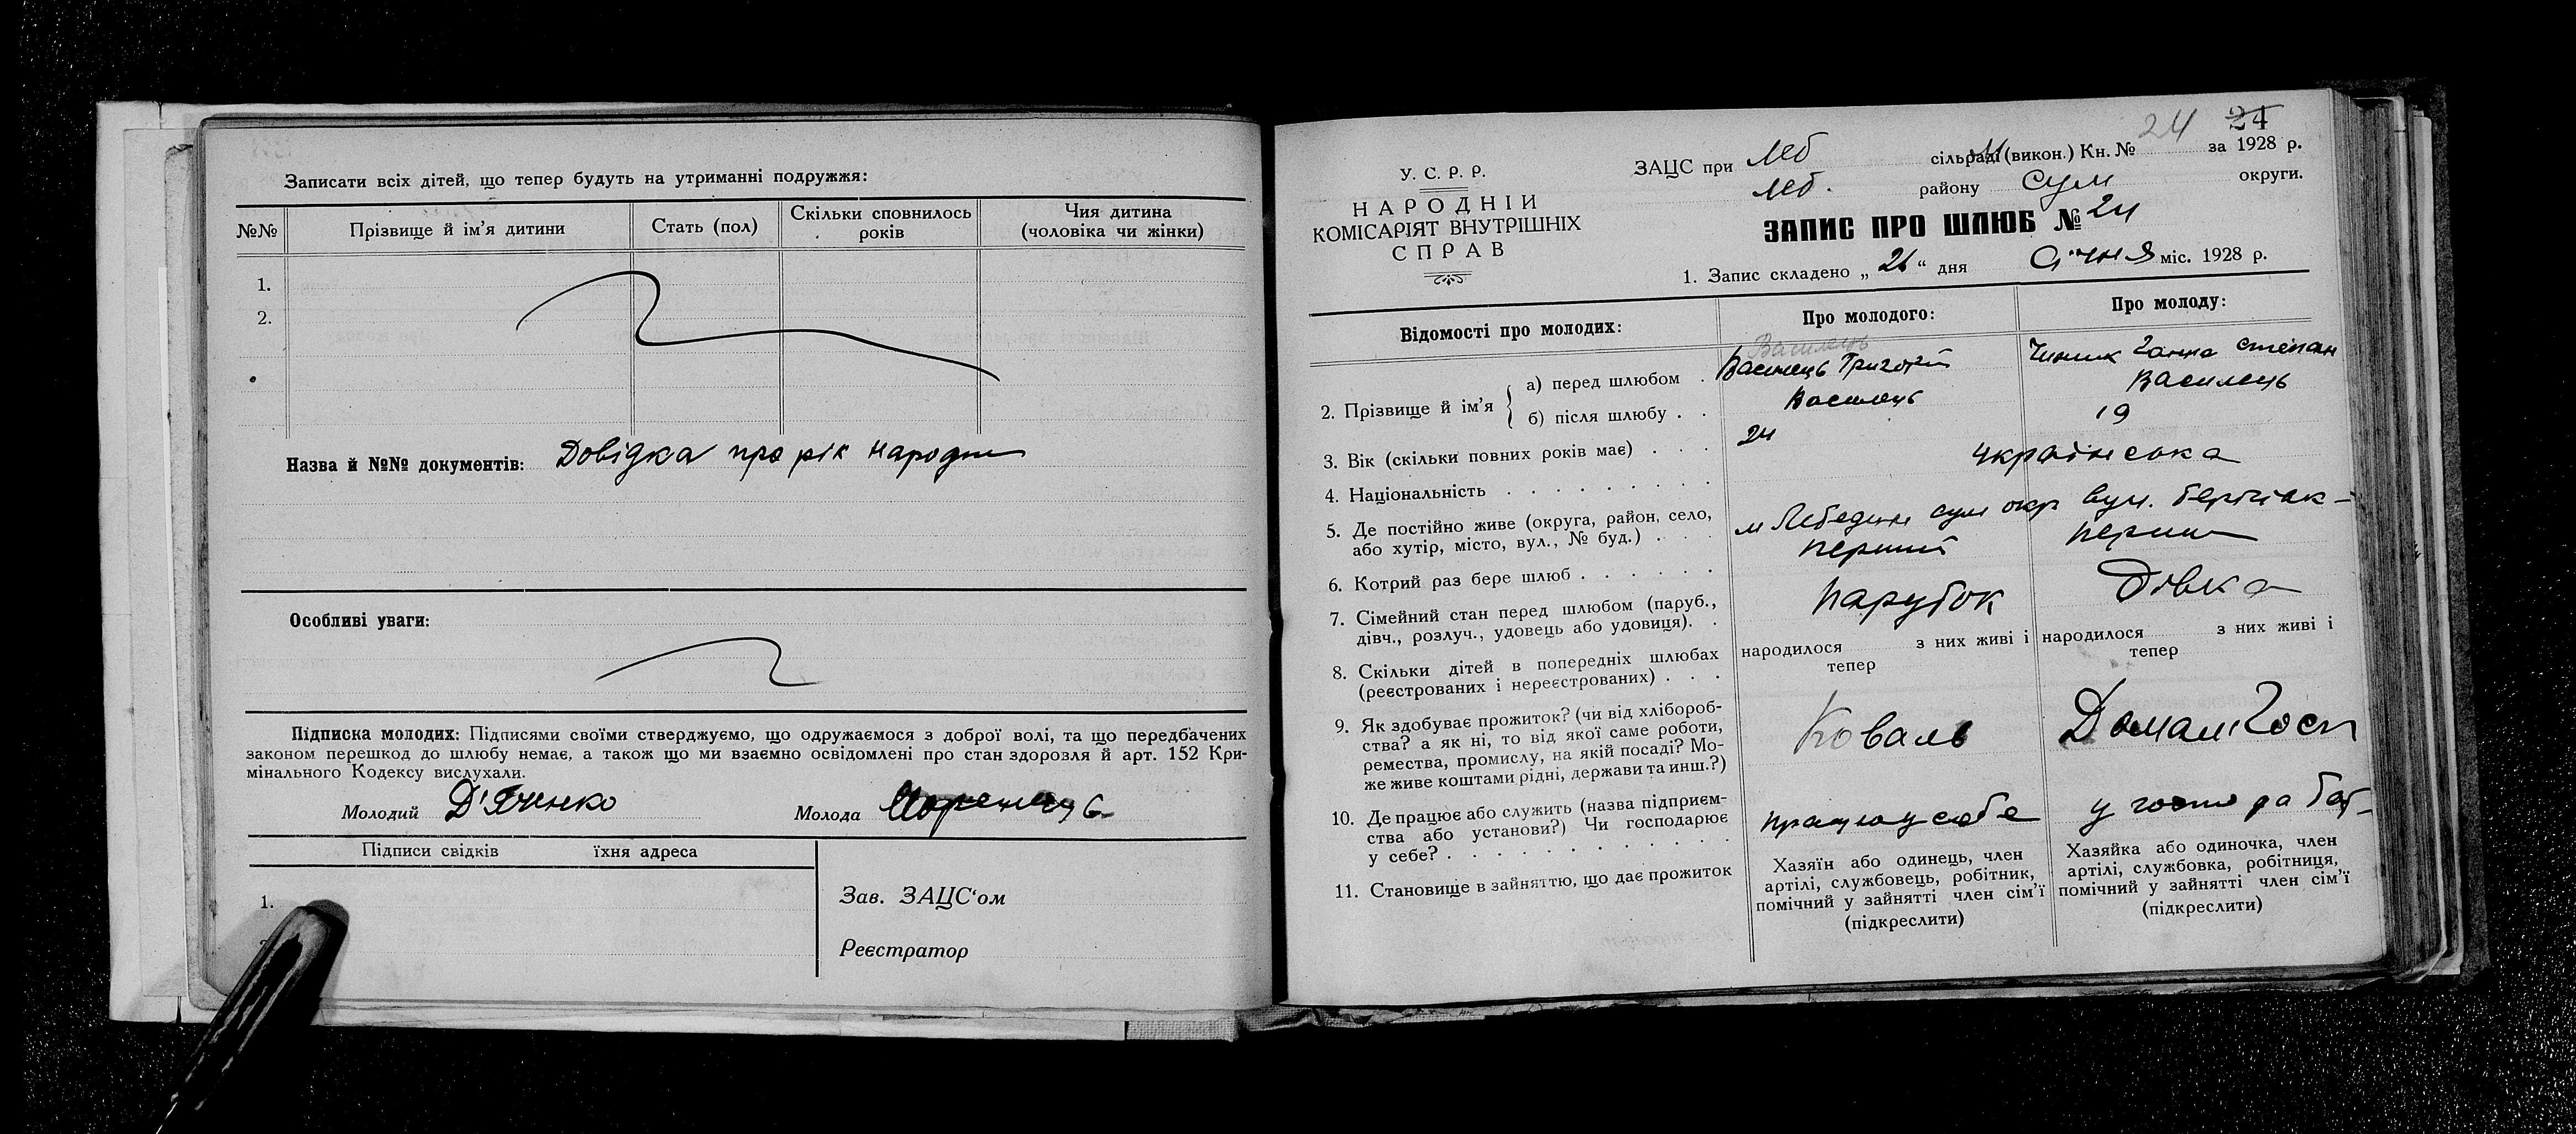 Записати всіх дітей, що тепер будуть на утриманні подружжя:
№№ Прізвище й ім'я дитини Стать (пол) Скільки сповнилось років Чия дитина (чоловіка чи жінки)
1.
2.
Назва й №№ документів: Довідка про рік народж
Особливі уваги:
Підписка молодих: Підписями своїми стверджуємо, що одружаємося з доброї волі, та що передбачених
законом перешкод до шлюбу немає, а також що ми взаємно освідомлені про стан здоровля й арт. 152 Кри-
мінального Кодексу вислухали.
Молодий Д'яченко Молода
Підписи свідків їхня адреса
1.
Зав. ЗАЦС'ом
Реєстратор
24 24
У. С. Р. Р.
НАРОДНІЙ
КОМІСАРІЯТ ВНУТРІШНІХ
СПРАВ
ЗАЦС при Леб сільраді (викон.) Кн. № за 1928 р.
Леб. району Сум округи.
ЗАПИС ПРО ШЛЮБ № 24
1. Запис складено „26“ дня Січня міс. 1928 р.
Відомості про молодих: Про молодого: Про молоду:
Василець
2. Прізвище й ім'я { а) перед шлюбом . Василець Григорій Ганна Степан
б) після шлюбу . . Василець Василець
3. Вік (скільки повних років має) . . . 24 19
4. Національність . . . . . . . . . українська
5. Де постійно живе (округа, район, село,
або хутір, місто, вул., № буд.) . . . м Лебедин сум окр вул.
6. Котрий раз бере шлюб . . . . . . перший перший
7. Сімейний стан перед шлюбом (паруб.,
дівч., розлуч., удовець або удовиця). . парубок дівка
8. Скільки дітей в попередніх шлюбах
(реєстрованих і нереєстрованих) . . . народилося з них живі і тепер народилося з них живі і тепер
9. Як здобуває прожиток? (чи від хлібороб-
ства? а як ні, то від якої саме роботи,
ремества, промислу, на якій посаді? Мо-
же живе коштами рідні, держави та инш.?) Коваль Домаш Госп
10. Де працює або служить (назва підприєм-
ства або установи?) Чи господарює
у себе? . . . . . . . . . . . . працює у себе у
11. Становище в зайняттю, що дає прожиток
Хазяїн або одинець, член
артілі, службовець, робітник,
помічний у зайнятті член сім'ї
(підкреслити)
Хазяйка або одиночка, член
артілі, службовка, робітниця,
помічний у зайнятті член сім'ї
(підкреслити)